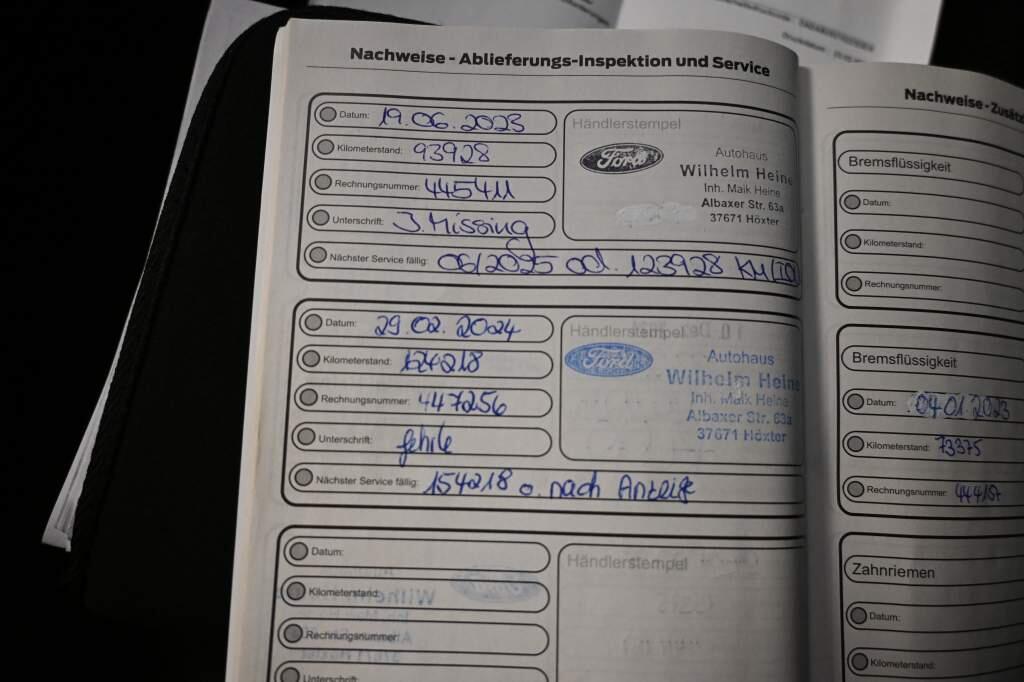 Nachweise - Ablieferungs-Inspektion und Service
Datum: 19.06.2023
Kilometerstand: 93928
Rechnungsnummer: 445411
Unterschrift: J. Missing
Nächster Service fällig: 06/2025 od. 123928 KM
Händlerstempel
Ford
Autohaus
Wilhelm Heine
Inh. Maik Heine
Albaxer Str. 63a
37671 Höxter
Datum: 29.02.2024
Kilometerstand: 124218
Rechnungsnummer: 447256
Unterschrift:
Nächster Service fällig: 154218 o. nach Anzeige
Händlerstempel
Ford
Autohaus
Wilhelm Hein
Inh. Maik Heine
Albaxer Str. 63a
37671 Höxter
Datum:
Kilometerstand:
Rechnungsnummer:
Unterschrift:
Händlerstempel
Nachweise - Zusätz
Bremsflüssigkeit
Datum:
Kilometerstand:
Rechnungsnummer:
Bremsflüssigkeit
Datum: 04.01.2023
Kilometerstand: 73375
Rechnungsnummer:
Zahnriemen
Datum:
Kilometerstand: